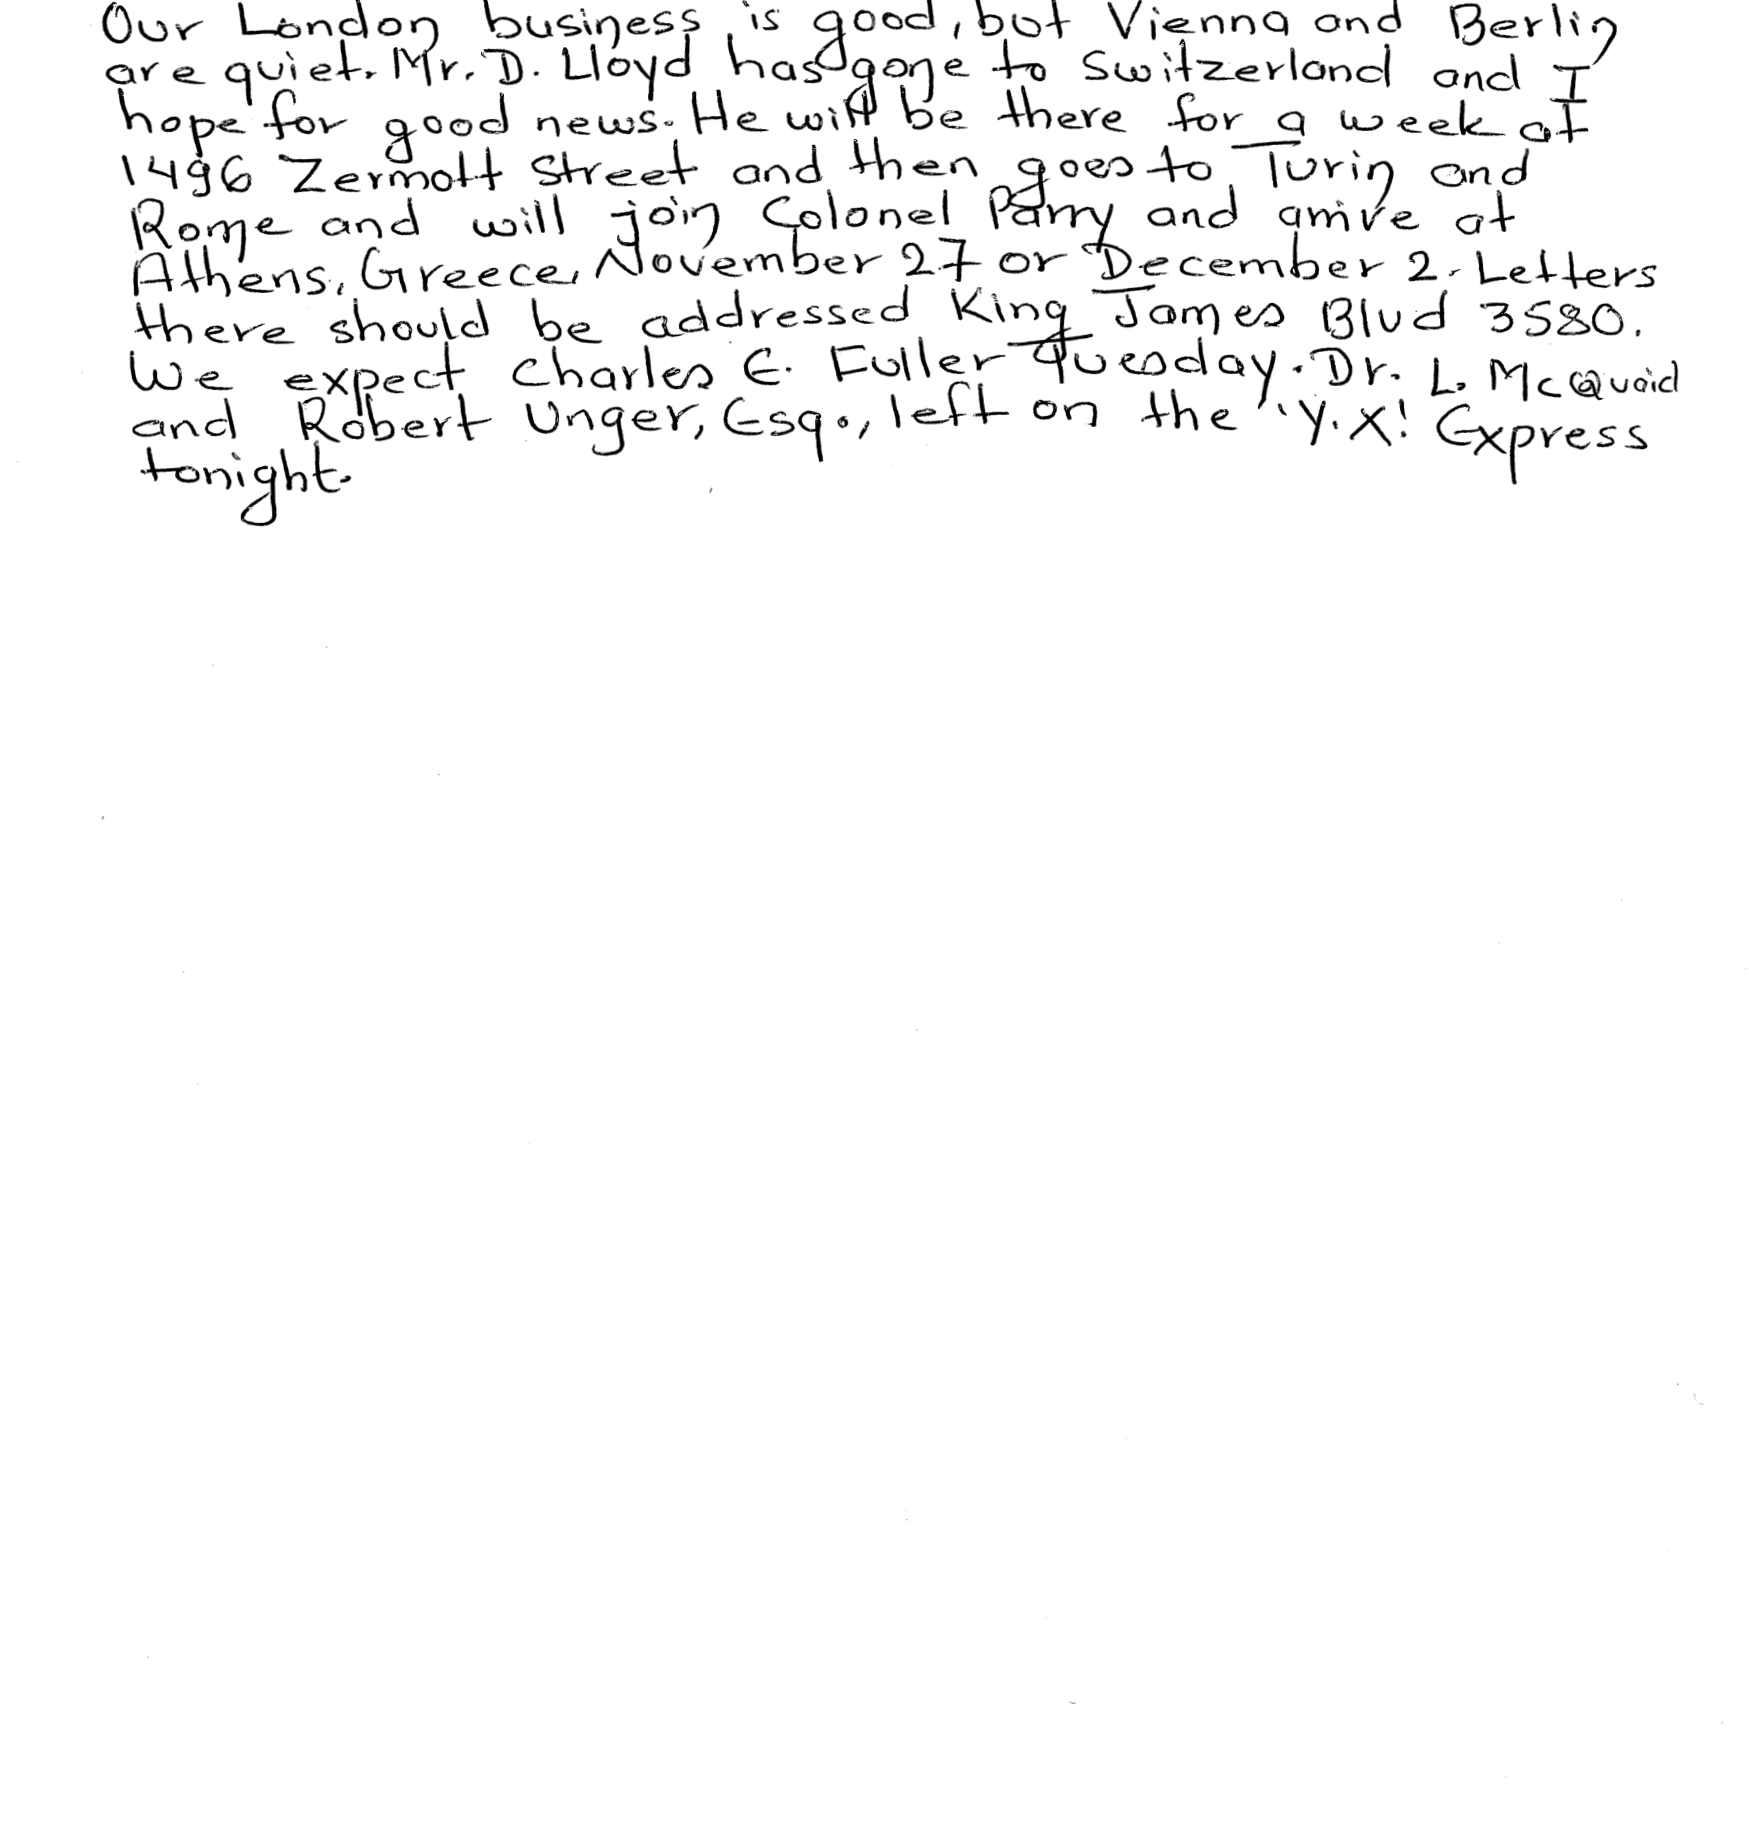 Our London business is good, but Vienna and Berlin
are quiet. Mr. D. Lloyd has gone to Switzerland and I
hope for good news. He will be there for a week at
1496 Zermott Street and then goes to Turin and
Rome and will join Colonel Parry and arrive at
Athens, Greece, November 27 or December 2. Letters
there should be addressed King James Blvd 3580.
We expect Charles E. Fuller Tuesday. Dr. L. McQuaid
and Robert Unger, Esq., left on the "Y.X! Express
tonight.